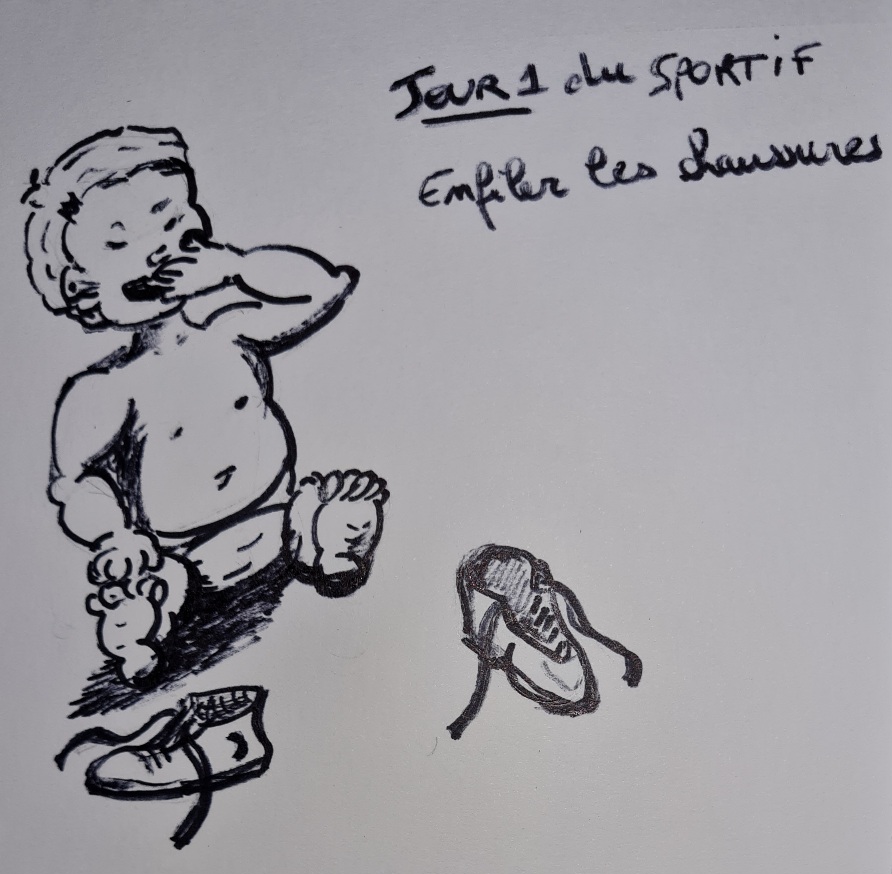 JOUR 1 du SPORTiF
Enfiler les chaussures